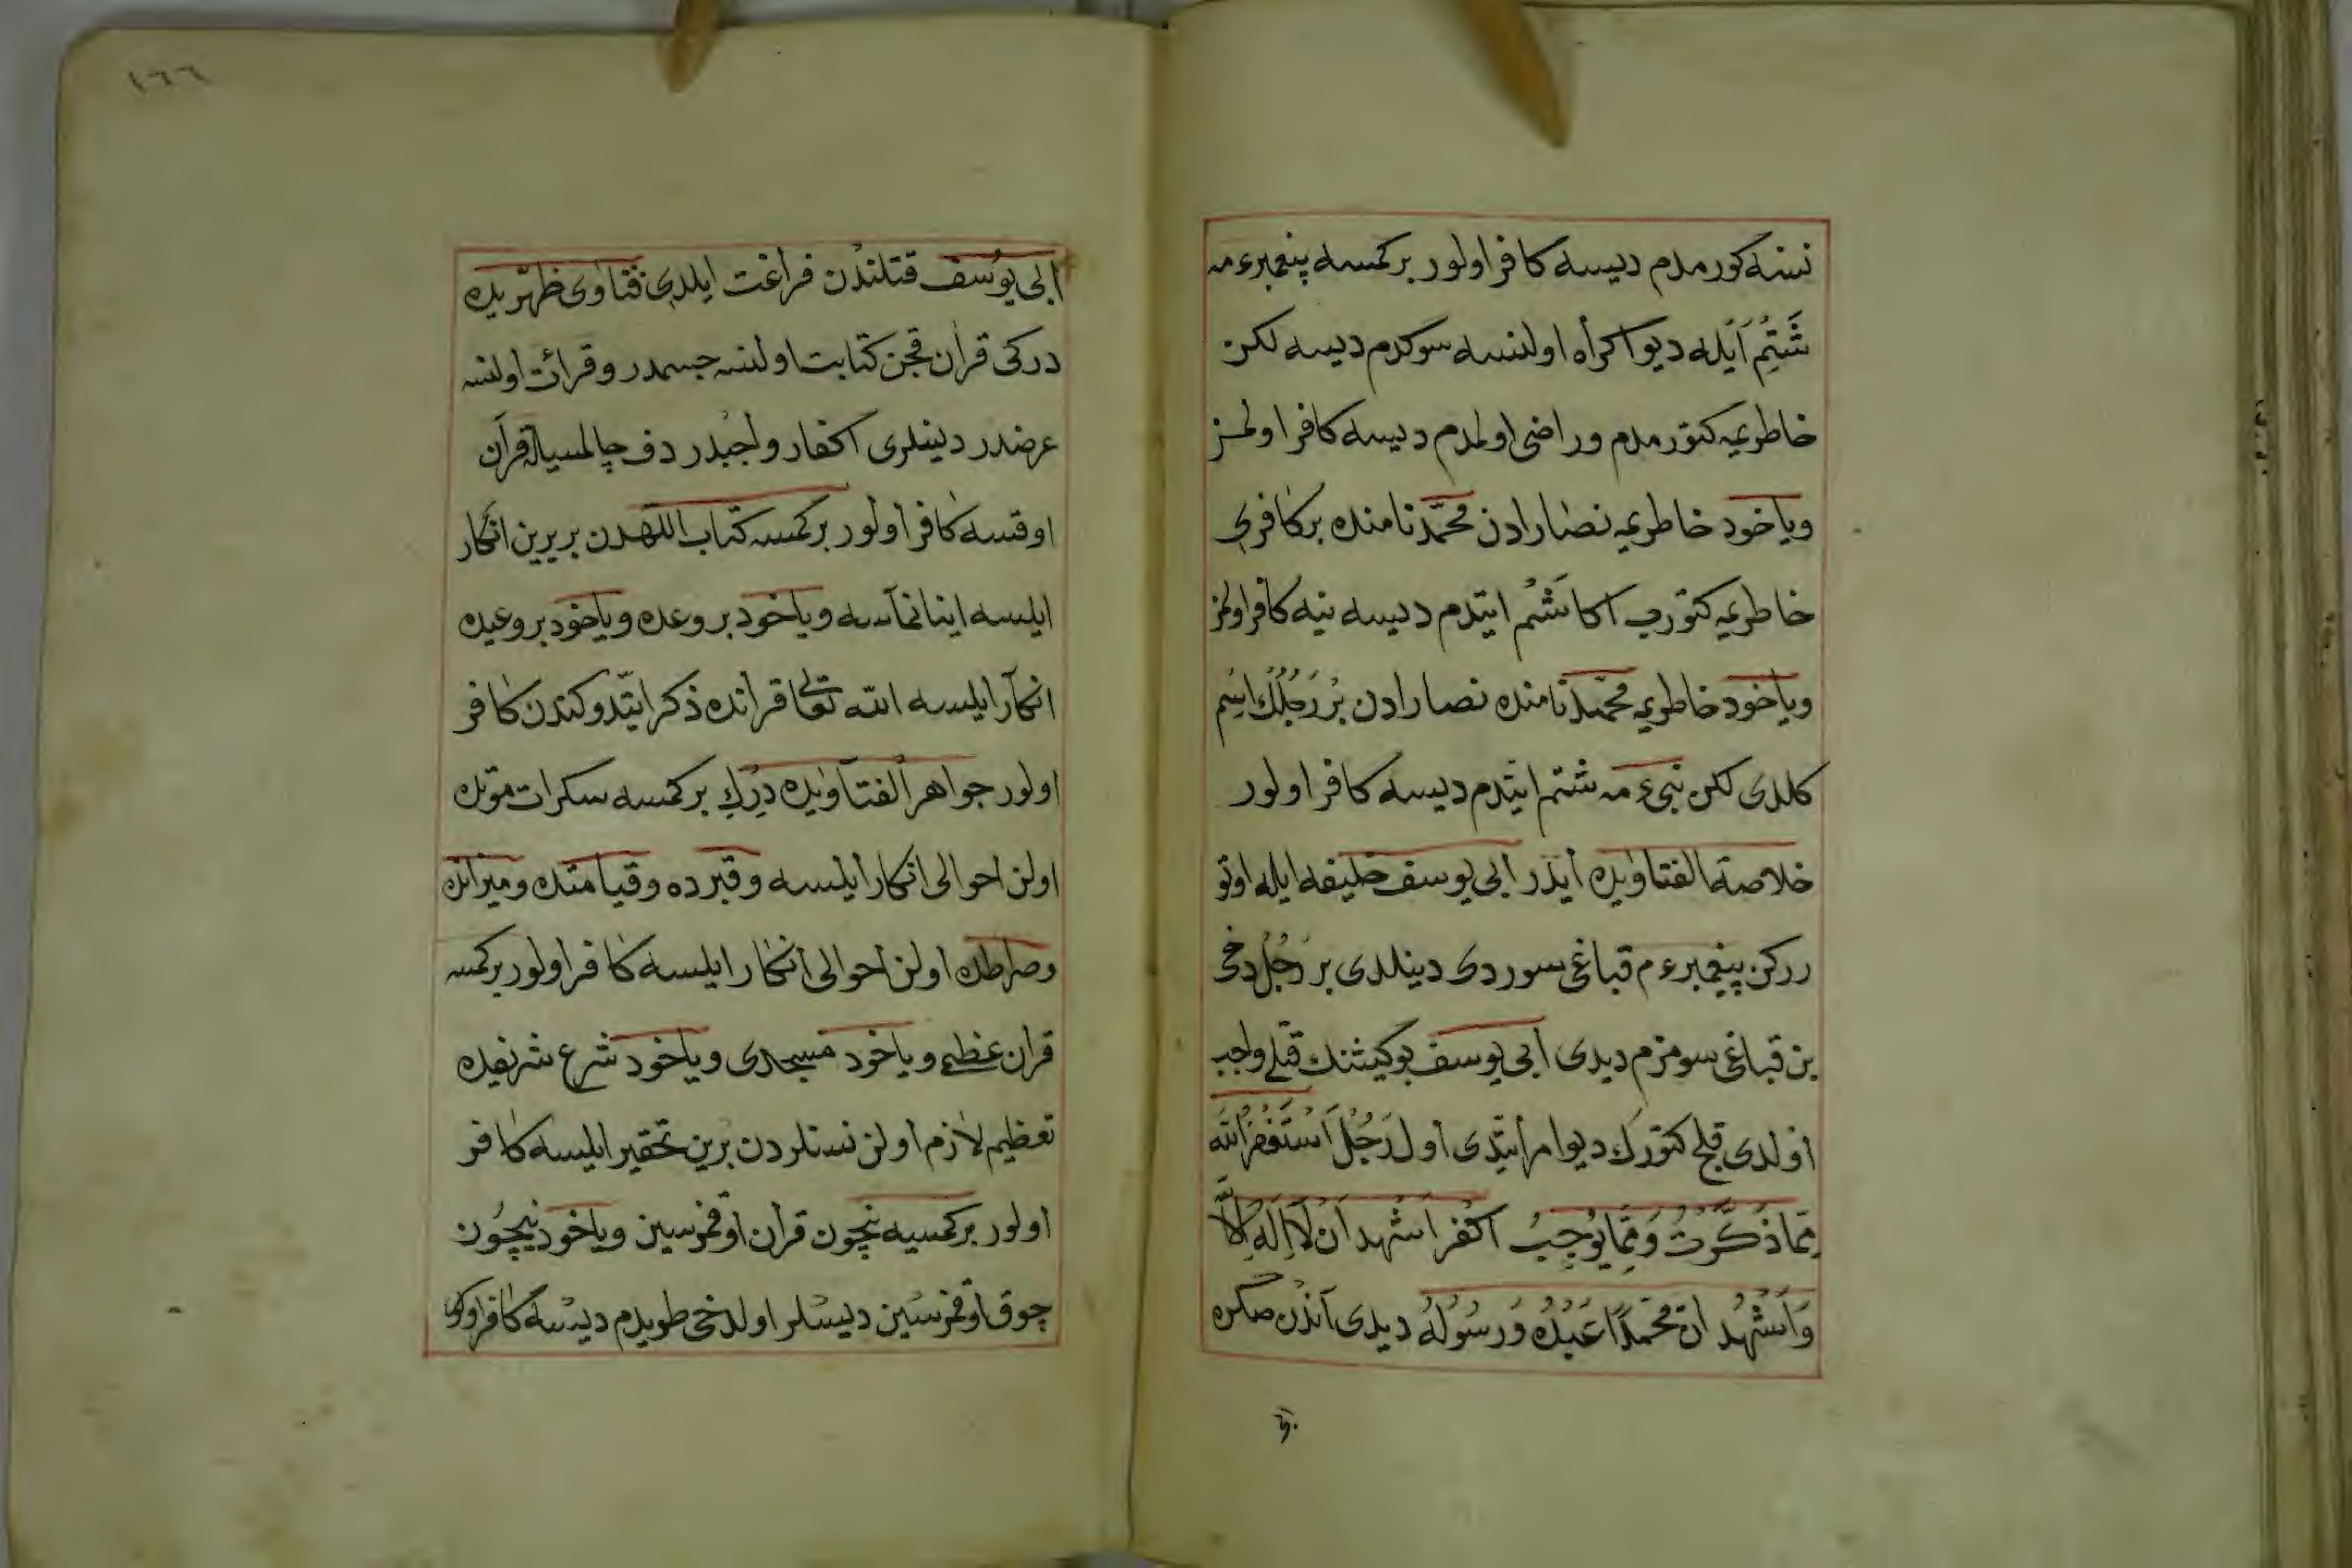 نسنه كورمدم ديسه كافر اولور بر كمسه پيغمبره عم
شَتِمْ اَيْله ديو اكراه اولنسه سوكدم ديسه لكن
خاطريمه كتورمدم و راضى اولمدم ديسه كافر اولمز
و ياخود خاطريمه نصارادن محمّد نامنده بر كافرى
خاطريمه كتورب اكا شَتْم ايتدم ديسه ينه كافر اولمز
و ياخود خاطريمه محمّد نامنده نصارادن بْر رَجُلُكْ اسْم
كلدى لكن نبى عمه شتم ايتدم ديسه كافر اولور
خلاصة الفتاويده ايدر ابى يوسف خليفه ايله اوتو
رركن پيغمبر عم قباغى سوردى دينلدى بر رَجُل دخى
بن قباغى سومزم ديدى ابى يوسف بو كيشنك قتلى واجب
اولدى قلج كتورك ديو امر ايتدى اول رَجُل اَسْتَغْفِرُ الله
مِمَّا ذَكَرْتُ وَ مِمَّا يُوجِبُ اكفر اَشْهد اَنْ لَا اِلَهَ اِلاَّ
وَ اَشْهَدُ انّ محمّداً عَبْدُهُ وَ رَسُولُهُ ديدى آنْدن صكره
١٦٦
ابى يوُسف قتلندن فراغت ايلدى فتاوى ظهيريده
دركى قران قچن كتابت اولنسه جسمدر و قرائت اولنسه
عرضدر دينلرى اكفار واجبدر دف چالمسيله قرآن
اوقسه كافر اولور بر كمسه كتاب اللهدن بر يرين انكار
ايلسه اينانماسه و ياخود بر وعده و ياخود بر وعيده
انكار ايلسه الله تعالى قرانده ذكر ايتدوكندن كافر
اولور جواهر الفتاويده دِركِ بر كمسه سكرات موتده
اولن احوالى انكار ايلسه و قبرده و قيامتده و ميزانده
و صراطده اولن احوالى انكار ايلسه كافر اولور بر كمسه
قران عظيمى و ياخود مسجدى و ياخود شرع شريفده
تعظيم لازم اولن نسنلردن برين تحقير ايلسه كافر
اولور بر كمسيه نچون قران اوقمزسين و ياخود نيچُون
چوق اوقمزسين ديسلر اولدخى طويدم ديسه كافر اولور